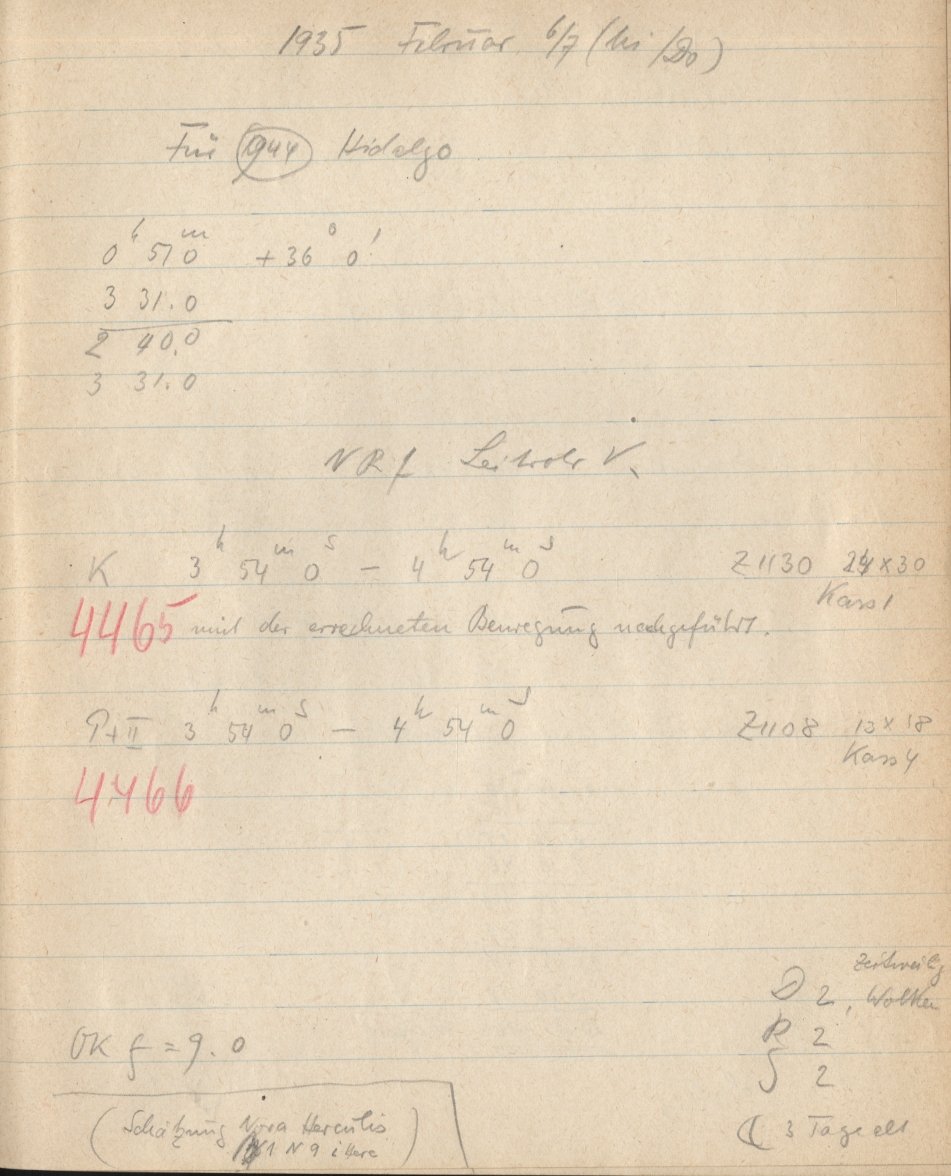 1935 Februar 6/7 (Mi/Do)
Für 944 Hidalgo
0h 51m 0 +36° 0'
3 31.0
2 40.0
3 31.0
NR f Leitrohr V.
K 3h 54m 0s - 4h 54m 0s Z1130 24x30
Kass 1
4465 mit der errechneten Bewegung nachgeführt.
P+II 3h 54m 0s - 4h 54m 0s Z1108 13x18
Kass 4
4466
zeitweilig
D 2, Wolken
R 2
OK f = 9.0
S 2
(Schätzung Nova Herculis
1 N 9 i Herc)
☾ 3 Tage alt